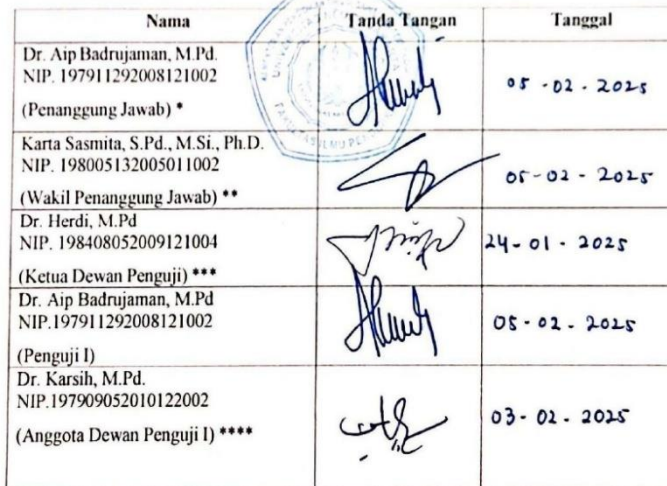 Nama Tanda Tangan Tanggal
Dr. Aip Badrujaman, M.Pd.
NIP. 197911292008121002
(Penanggung Jawab) *
05 - 02 - 2025
Karta Sasmita, S.Pd., M.Si., Ph.D.
NIP. 198005132005011002
(Wakil Penanggung Jawab) **
05 - 02 - 2025
Dr. Herdi, M.Pd
NIP. 198408052009121004
(Ketua Dewan Penguji) ***
24 - 01 - 2025
Dr. Aip Badrujaman, M.Pd
NIP.197911292008121002
(Penguji I)
05 - 02 - 2025
Dr. Karsih, M.Pd.
NIP.197909052010122002
(Anggota Dewan Penguji I) ****
03 - 02 - 2025